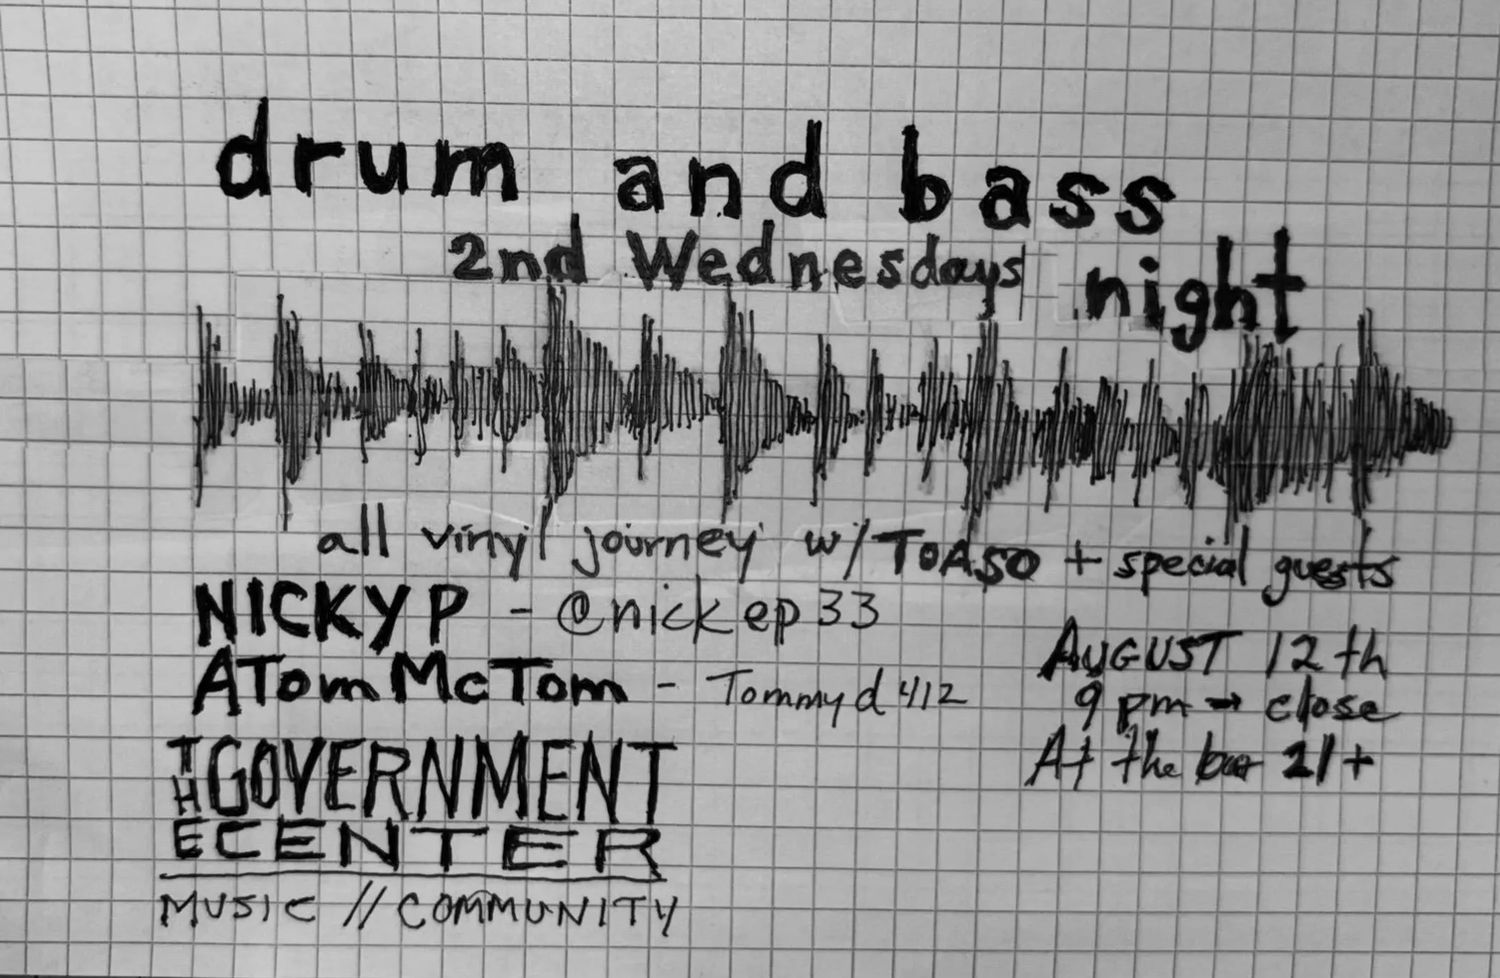 drum and bass
2nd Wednesdays night
all vinyl journey w/ TOASO + special guests
NICKY P - @nickep33
ATom McTom - Tommyd412
AUGUST 12th
9 pm → close
At the bar 21+
THE GOVERNMENT
CENTER
MUSIC // COMMUNITY